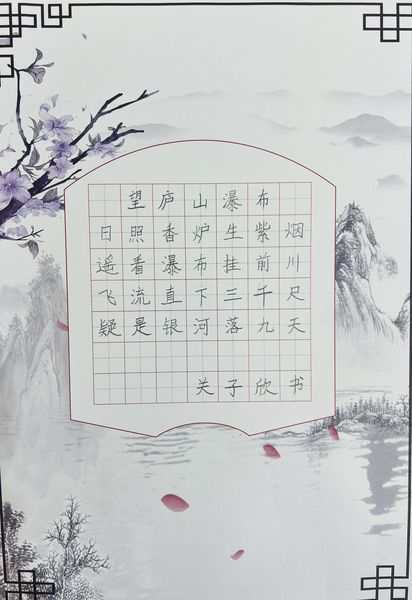 望庐山瀑布
日照香炉生紫烟
遥看瀑布挂前川
飞流直下三千尺
疑是银河落九天
关子欣书